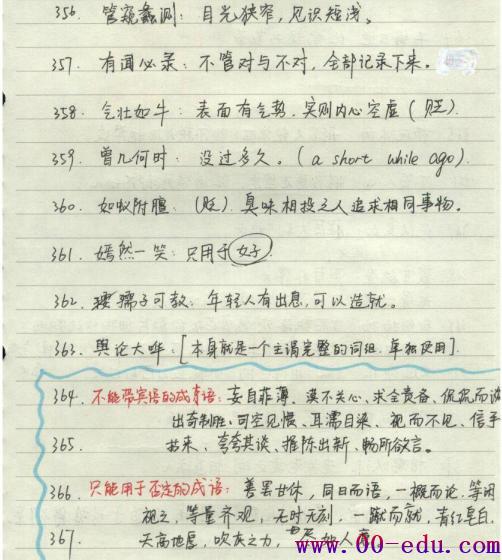 356. 管窥蠡测：目光狭窄，见识短浅。
357. 有闻必录：不管对与不对，全部记录下来。
358. 气壮如牛：表面有气势，实则内心空虚（贬）.
359. 曾几何时：没过多久。（a short while ago）.
360. 如蚁附膻：（贬）.臭味相投之人追求相同事物。
361. 嫣然一笑：只用于女子.
362. 孺子可教：年轻人有出息，可以造就。
363. 舆论大哗：[本身就是一个主谓完整的词组，单独使用].
364. 不能带宾语的成语：妄自菲薄、漠不关心、求全责备、侃侃而谈
出奇制胜、司空见惯、耳濡目染、视而不见、信手
365. 拈来、夸夸其谈、推陈出新、畅所欲言。
366. 只能用于否定的成语：善罢甘休，同日而语，一概而论，等闲
视之，等量齐观，无时无刻，一蹴而就，青红皂白.
367. 天高地厚，吹灰之力，人
www.00-edu.com